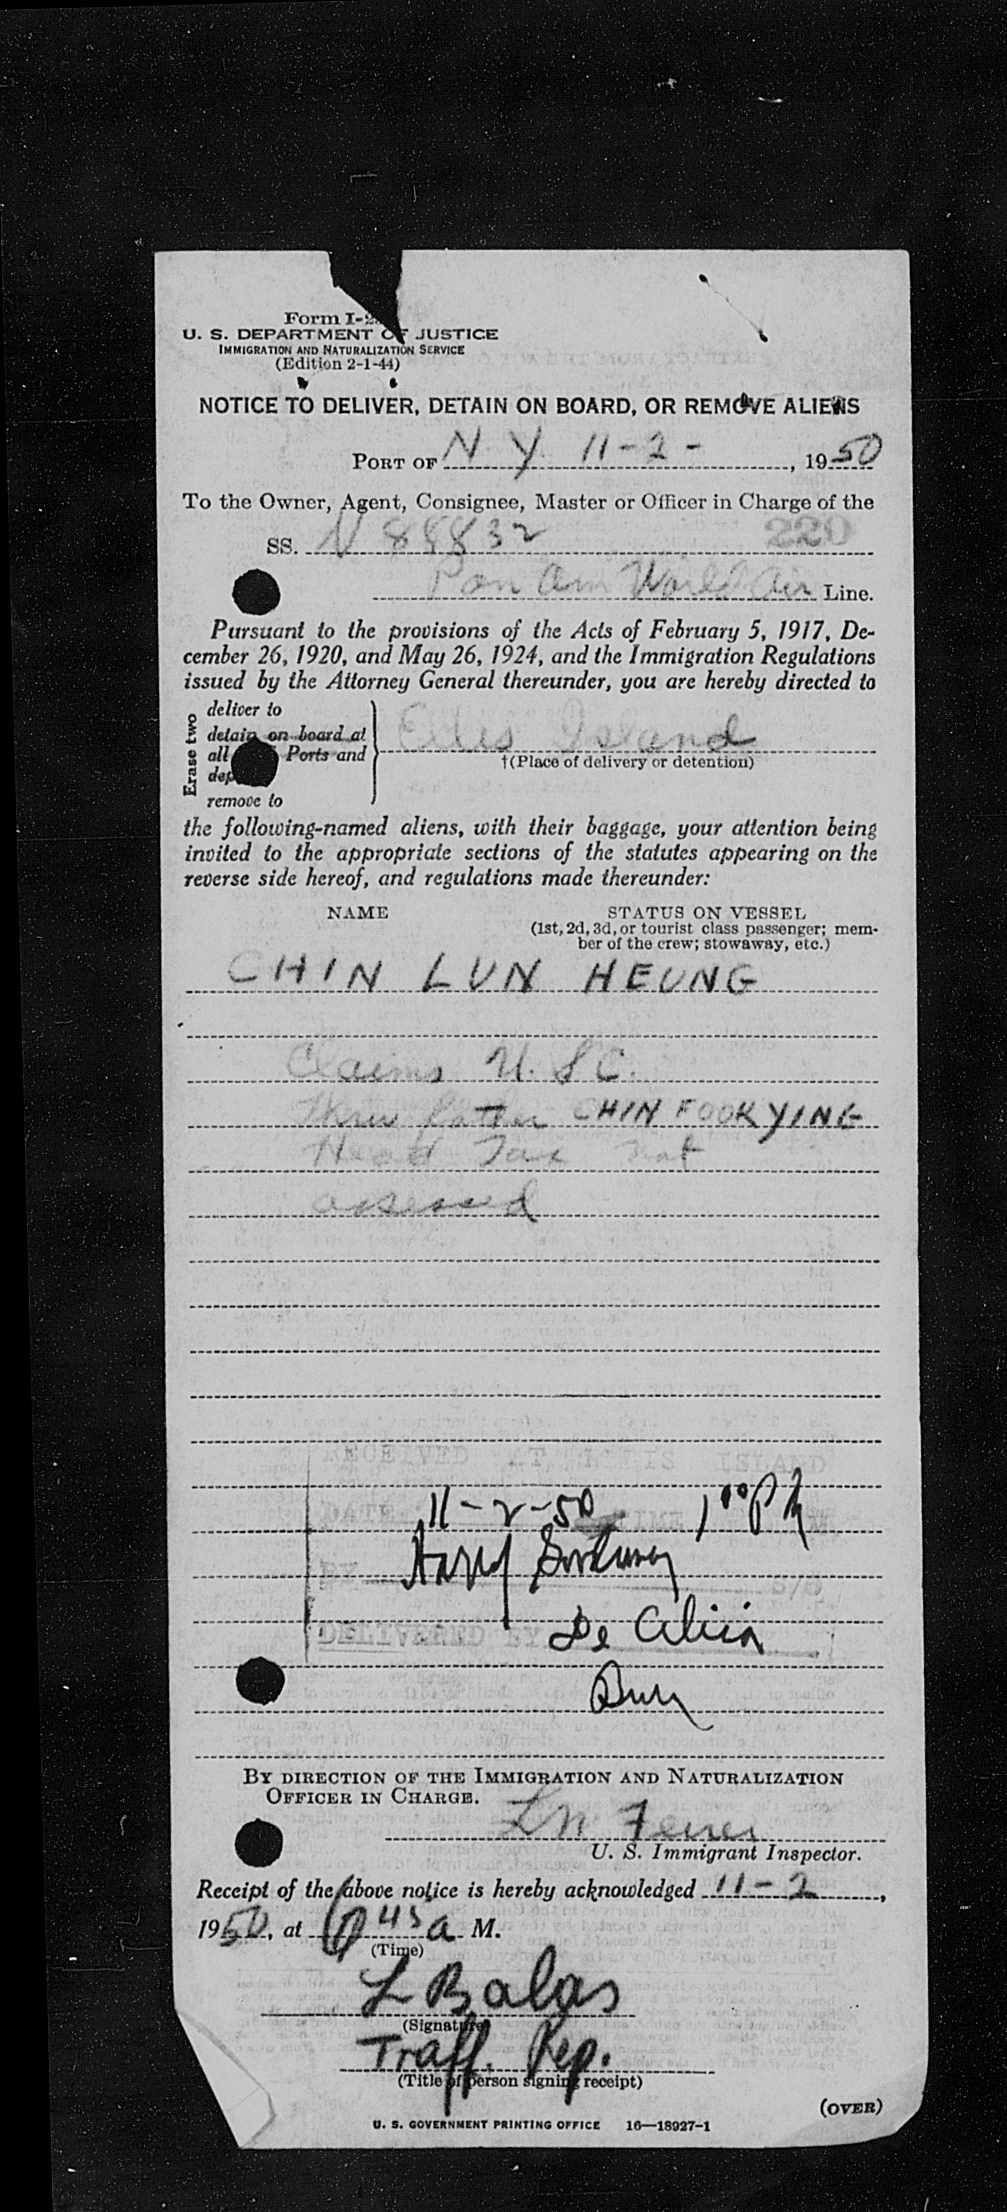 Form I-2
U. S. DEPARTMENT OF JUSTICE
IMMIGRATION AND NATURALIZATION SERVICE
(Edition 2-1-44)
NOTICE TO DELIVER, DETAIN ON BOARD, OR REMOVE ALIENS
PORT OF N Y 11-2-, 1950
To the Owner, Agent, Consignee, Master or Officer in Charge of the
220
SS. N 88832
Pan Am World Air Line.
Pursuant to the provisions of the Acts of February 5, 1917, De-
cember 26, 1920, and May 26, 1924, and the Immigration Regulations
issued by the Attorney General thereunder, you are hereby directed to
Erase two
deliver to
detain on board at
all Ports and
dep
remove to
Ellis Island
†(Place of delivery or detention)
the following-named aliens, with their baggage, your attention being
invited to the appropriate sections of the statutes appearing on the
reverse side hereof, and regulations made thereunder:
NAME STATUS ON VESSEL
(1st, 2d, 3d, or tourist class passenger; mem-
ber of the crew; stowaway, etc.)
CHIN LUN HEUNG
Claims U.S.C.
thru father CHIN FOOK YING
Head Tax not
assessed
RECEIVED AT ELLIS ISLAND
DATE 11-2-50 TIME 1 00 P M
BY
DELIVERED BY
BY DIRECTION OF THE IMMIGRATION AND NATURALIZATION
OFFICER IN CHARGE.
U. S. Immigrant Inspector.
Receipt of the above notice is hereby acknowledged 11-2,
1950, at 45 a M.
(Time)
L Balas
(Signature)
Traff. Rep.
(Title of person signing receipt)
(OVER)
U. S. GOVERNMENT PRINTING OFFICE 16—18927-1